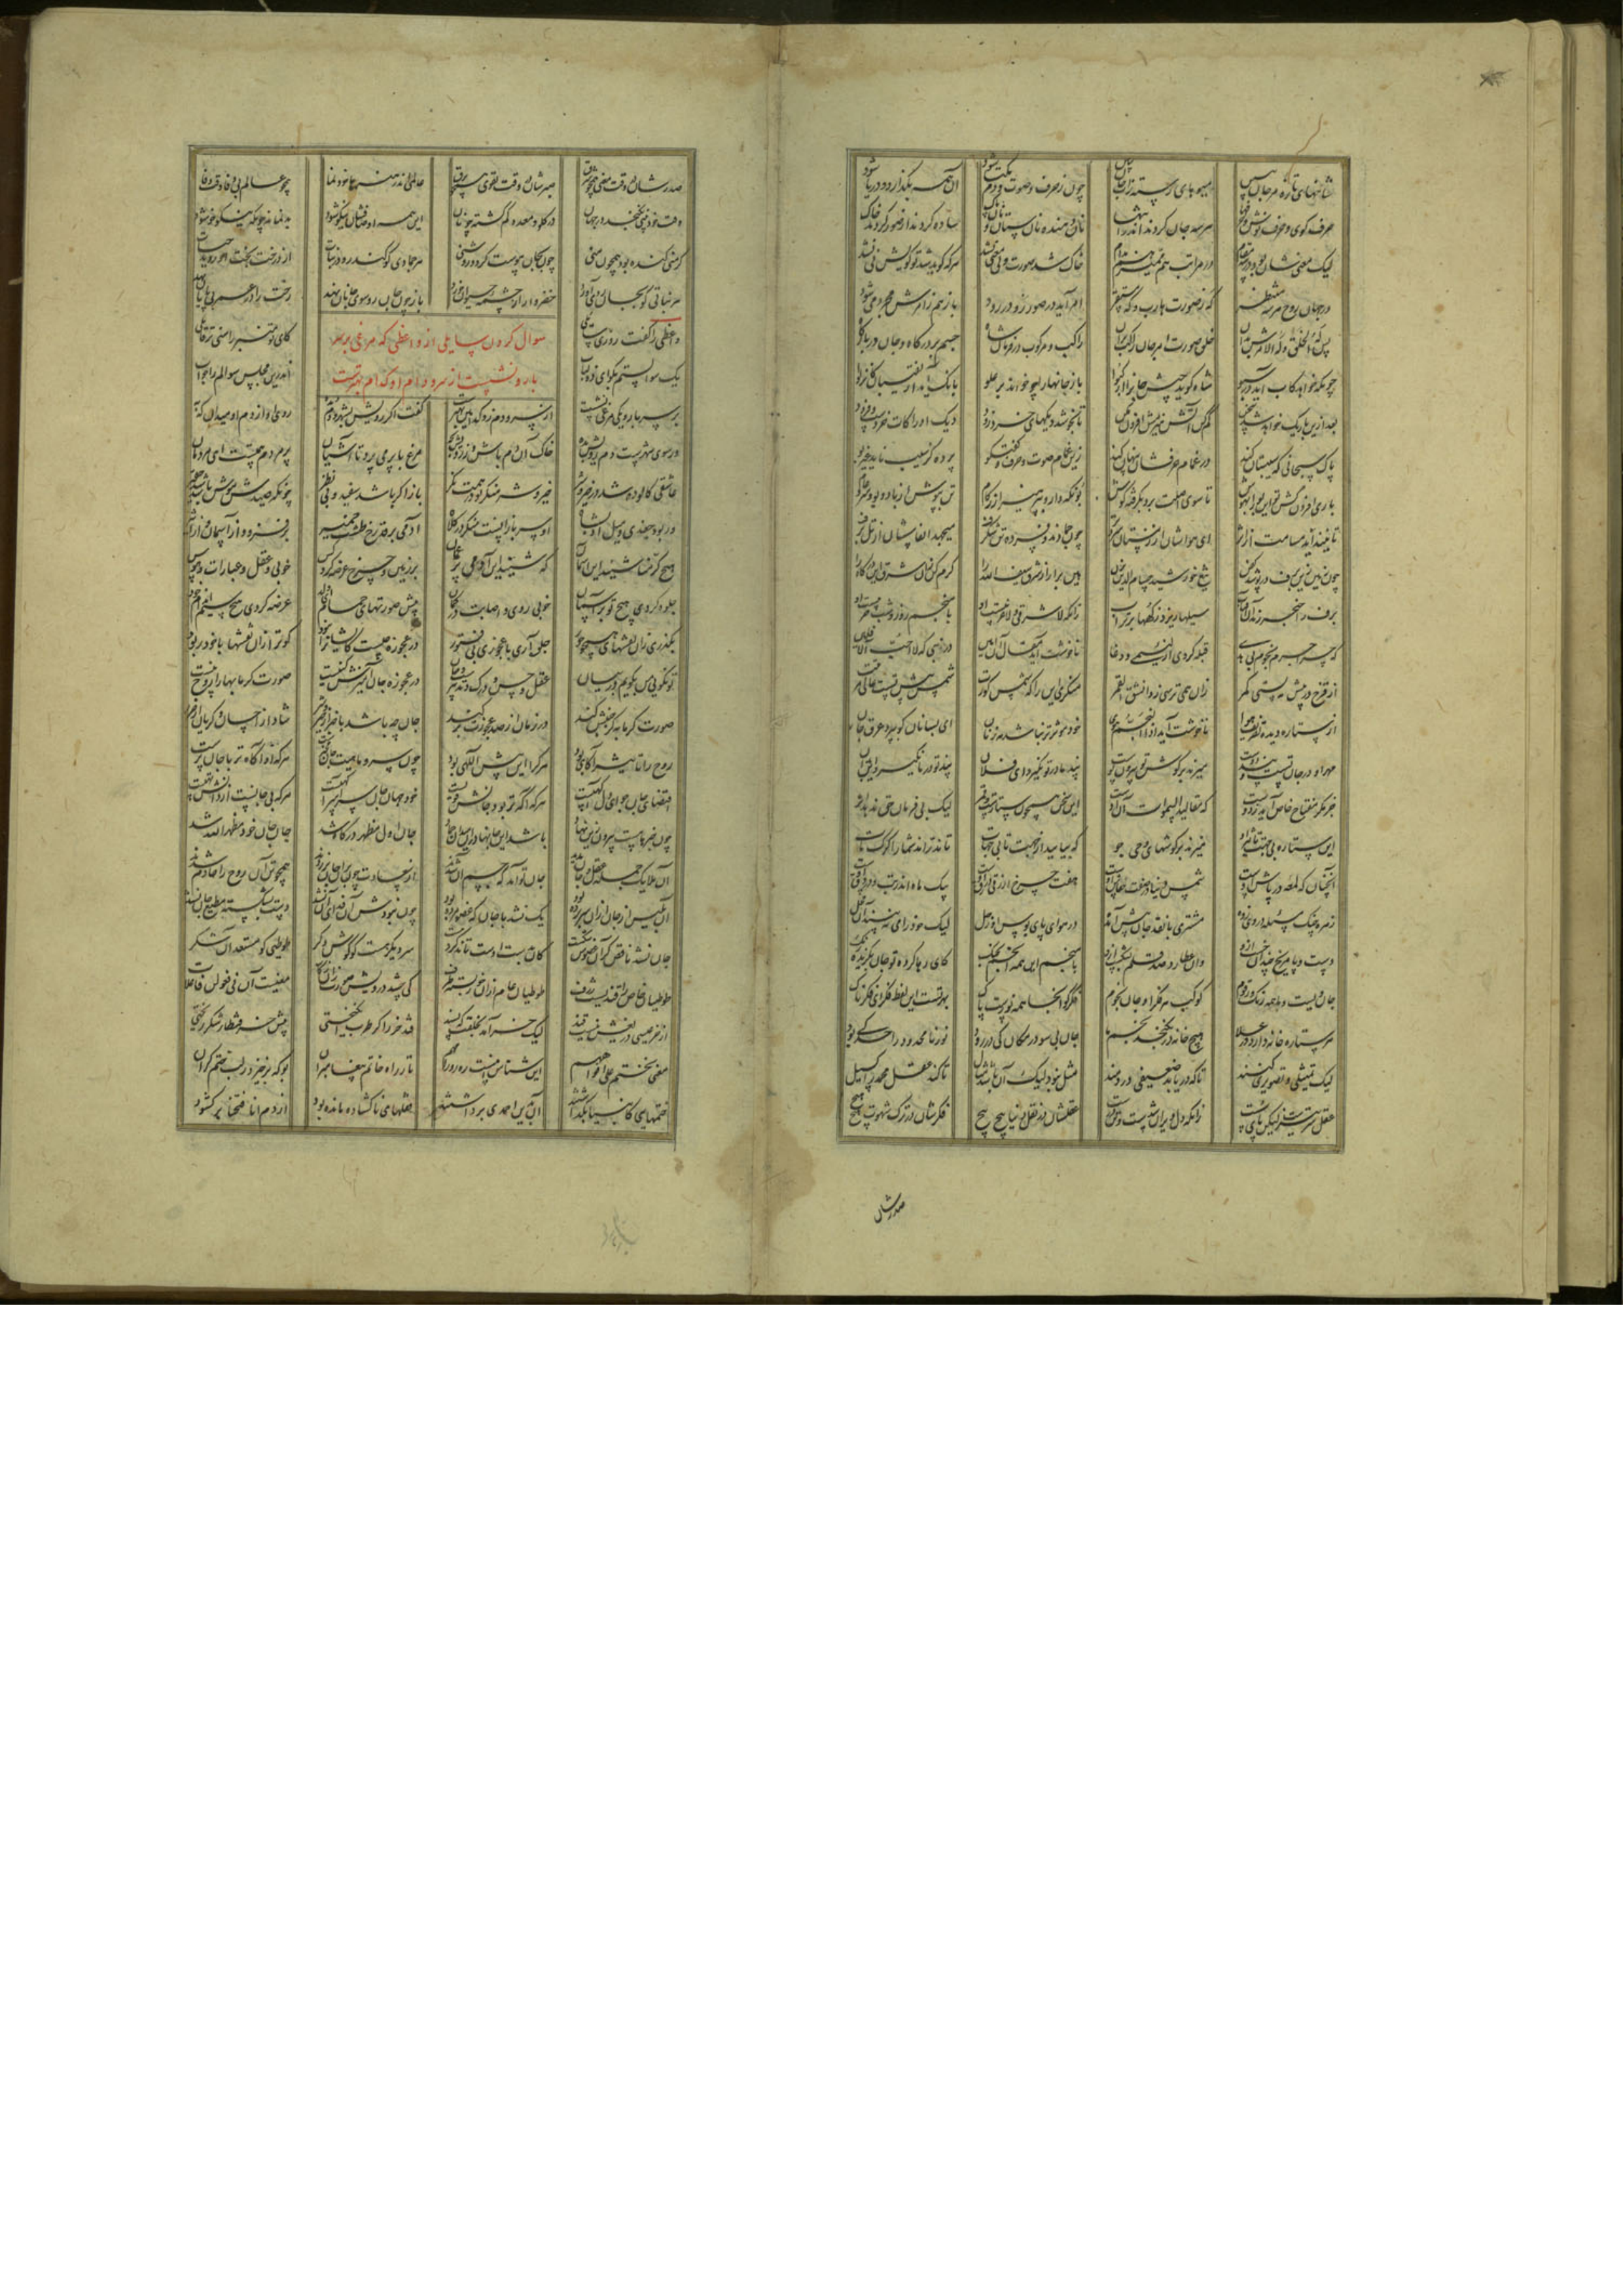 شاخهای تازه مرجان ببین میوهای رسته ز آب جان ببین چون ز حرف و صوت و دم یکتا شود آن همه بگذارد و دریا شود
حرف گوی و حرف نوش و حرفها هر سه جان گردند اندر انتها نان دهنده و نان ستان و نان پاک ساده گردند از صور گردند خاک
لیک معنی شان بود در سه مقام در مراتب هم ممیز هم مدام خاک شد صورت ولی معنی نشد هر که گوید شد تو گویش نی نشد
در جهان روح هر سه منتظر که ز صورت هارب و که مستقر امر آید در صور رو در رود باز هم ز امرش مجرد می شود
پس له الخلق و له الامرش بدان خلق صورت امر جان راکب بر آن راکب و مرکوب در فرمان شاه جسم بر درگاه و جان در بارگاه
چونکه خواهد کاب آید در سبو شاه گوید جیش جان را که ارکبوا باز جانها را چو خواند بر علو بانک آید از نقیبان که انزلوا
بعد ازین باریک خواهد شد سخن کم کن آتش هیزمش افزون مکن تا نجوشد دیکهای خرد زود دیک ادراکات خردست و فرود
پاک سبحانی که سیبستان کند در غمام حرفشان پنهان کند زین غمام صوت و حرف و گفت کو پرده کز سیب ناید غیر بو
باری افزون کش تو این بو را بهوش تا سوی اصلت برد بگرفته گوش بو نگه دار و بپرهیز از زکام تن بپوش از باد و بود سرد عام
تا نینداید مشامت از اثر ای هواشان از زمستان سردتر چون جمادند و فسرده تن شگرف میجهد انفاسشان از تل برف
چون زمین زین برف در پوشد کفن تیغ خورشید حسام الدین بزن هین برآر از شرق سیف الله را گرم کن زان شرق این درگاه را
برف را خنجر زند آن آفتاب سیلها ریزد ز کهها بر تراب زانکه لا شرقی و لا غربیست او با منجم روز و شب حربیست او
که چرا جز من نجوم بی هدی قبله کردی از لئیمی ناخوشت آید مقال آن امین در نبی که لا احب الآفلین
از قزح در پیش مه بستی کمر زان همی ترسی ز وانشق القمر منکری این را که شمس کورت شمس پیش تست عالی مرتبت
از ستاره دیده تصریف هوا ناخوشت آید اذا النجم هوی خود موثرتر نباشد مه ز نان ای بسا نان کو ببرد عرق جان
مهر او در جان تست و پند دوست میزند بر گوش تو بیرون پوست پند ما در تو نگیرد ای فلان پند تو در ما نگیرد این بدان
جز مگر مفتاح خاص آید ز دوست که مقالید السموات آن اوست این سخن همچون ستاره ست و قمر لیک بی فرمان حق ندهد اثر
این ستاره بی جهت تاثیر او میزند بر گوشهای وحی جو که بیایید از جهت تا بی جهات تا ندراند شما را گرگ مات
آنچنان که لمعه درپاش اوست شمس دنیا در صفت خفاش اوست هفت چرخ ازرقی در رق اوست پیک ماه اندر تب و در دق اوست
زهره چنک مسئله در وی زده مشتری با نقد جان پیش آمده در هوای پای بوس او زحل لیک خود را می نبیند آن محل
دست و پا مریخ چندان خست ازو وان عطارد صد قلم بشکست ازو با منجم این همه انجم بجنک کای رها کرده تو جان بگزیده رنک
جان ویست و ما همه رنک و رقوم کوکب هر فکر او جان نجوم فکر کو آنجا همه نورست پاک بهر تست این لفظ فکر ای فکرناک
هر ستاره خانه دارد در علا هیچ خانه در نگنجد نجم ما جان بی سو در مکان کی در رود نور نامحدود را حد کی بود
لیک تمثیلی و تصویری کنند تا که دریابد ضعیفی دردمند مثل نبود لیک آن باشد مثیل تا کند عقل مجمد را گسیل
عقل سر تیزست لیکن پای سست زانکه دل ویران شدست و تن درست عقلشان در نقل دنیا پیچ پیچ فکرشان در ترک شهوت هیچ هیچ
صدرشان
صدرشان در وقت همچو شرق صبرشان در وقت تقوی همچو برق عالمی اندر هنرها خودنما همچو عالم بی وفا وقت وفا
وقت خود بینی نگنجد در جهان در گلو و معده گم گشته چو نان این همه اوصافشان نیکو شود بد نماند چونکه نیکو خو شود
گر منی گنده بود همچون منی چون بجان پیوست گردد روشنی هر جمادی کو کند رو در نبات از درخت بخت او روید حیات
هر نباتی کو بجان رو آورد خضروار از چشمه حیوان خورد باز چون جان رو سوی جانان نهد رخت را در عمر بی پایان نهد
سوال کردن سایلی از واعظی که مرغی بر سر
بارو نشست از سر و دم او کدام بهترست
واعظی را گفت روزی سایلی کای تو منبر را سنی تر قایلی
یک سوالستم بگو ای ذولباب اندرین مجلس سوالم را جواب
بر سر بارو یکی مرغی نشست از سر و دم زو کدامین بهترست گفت اگر رویش بشهر و دم بده روی او از دم او میدان که به
ور سوی شهرست دم رویش بده خاک آن دم باش و از رویش بجه مرغ با پر می پرد تا آشیان پر مردم همتست ای مردمان
عاشقی کالوده شد در خیر و شر خیر و شر منگر تو در همت نگر باز اگر باشد سفید و بی نظیر چونکه صیدش موش باشد شد حقیر
ور بود جغدی و میل او بشاه او سر بازست منگر در کلاه آدمی بر قد طشت خمیر بر فزود از آسمان و از اثیر
هیچ کرمنا شنید این آسمان که شنید این آدمی پر غمان بر زمین و چرخ عرضه کرد کس خوبی و عقل و عبارات و هوس
جلوه کردی هیچ تو بر آسمان خوبی روی و اصابت در گمان پیش صورتهای حمام ای ولد عرضه کردی هیچ سیم اندام خود
بگذری زان نقشهای همچو حور جلوه آری با عجوزی در عجوزه چیست کایشان را نبود کو ترا زان نقشها با خود ربود
تو نگویی من بگویم در بیان عقل و حس و درک و تدبیرست و جان در عجوزه جان آمیزش کنیست صورت گرمابها را روح نیست
صورت گرمابه گر جنبش کند در زمان از صد عجوزت بر کند جان چه باشد با خبر از خیر و شر شاد از احسان و گریان از ضرر
روح را تاثیر آگاهی بود هر کرا این بیش اللهی بود چون سر و ماهیت جان مخبرست هر که او آگاه تر با جان ترست
اقتضای جان چو ای دل آگهیست هر که آگه تر بود جانش قویست خود جهان جان سراسر آگهیست هر که بی جانست از دانش تهیست
چون خبرها هست بیرون زین نهاد باشد این جانها در آن میدان جماد جان اول مظهر درگاه شد جان جان خود مظهر الله شد
آن ملایک جمله عقل و جان بدند جان نو آمد که جسم آن شدند از سعادت چون بر آن جان بر زدند همچو تن آن روح را خادم شدند
آن بلیس از جان از آن سر برده بود یک نشد با جان که عضو مرده بود چون نبودش آن فدای آن نشد دست بشکسته مطیع جان نشد
جان نشد ناقص گر آن عضوش شکست کان بدست اوست تاند کرد هست سر دیگر هست کو گوش دگر طوطیی کو مستعد آن شکر
طوطیان خاص را قندیست ژرف طوطیان عام از آن خور بسته طرف کی چشد درویش صورت زان زکات معنیست آن نی فعولن فاعلات
از خر عیسی دریغش نیست قند لیک خر آمد بخلقت که پسند قند خر را گر طرب انگیختی پیش خر قنطار شکر ریختی
معنی نختم علی افواههم این شناس اینست ره رو را مهم تا ز راه خاتم پیغامبران بو که برخیزد ز لب ختم گران
ختمهایی کانبیا بگذاشتند آن بدین احمدی برداشتند قفلهای ناگشاده مانده بود از دم انا فتحنا بر گشود